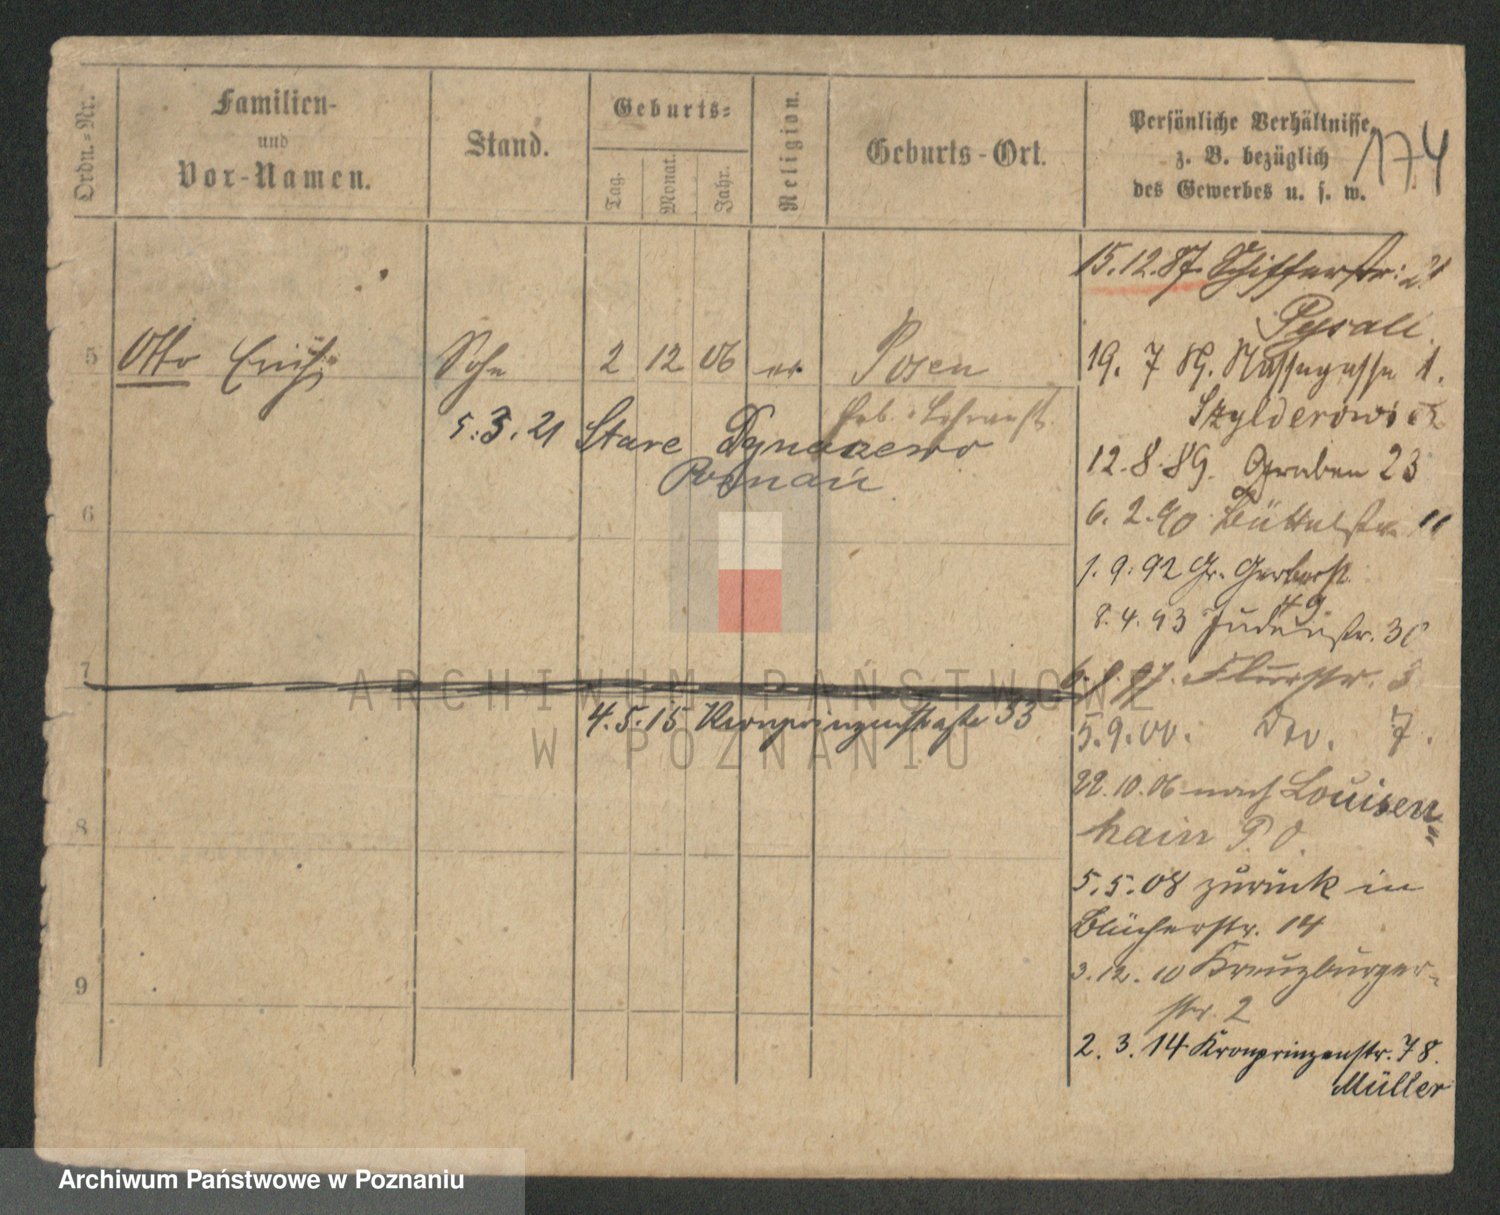 Ordn.-Nr.
Familien-
und
Vor-Namen.
Stand.
Geburts=
Tag.
Monat.
Jahr.
Religion.
Geburts-Ort.
Persönliche Verhältnisse
z. B. bezüglich
des Gewerbes u. s. w.
174
15.12.87. Schifferstr: 21
19. 7 89. 1.
12.8.89. Graben 23
6. 2.90 Büttelstr. 11
1.9.92 Gr. Gerberst.
49.
8.4.93 Judenstr. 30
97. Flurstr. 3
5.9.00. do. 7.
22.10.06 nach Louisen=
hain P.O.
5.5.08 zurück in
Blücherstr. 14
3.12.10 Kreuzburger-
str. 2
2.3.14 Kronprinzenstr. 78.
Müller
5 Otto Erich Sohn 2 12 06 Posen
5.3.21 Stare
Poznań
6
7
4.5.15 Kronprinzenstraße 33
8
9
ARCHIWUM PAŃSTWOWE
W POZNANIU
Archiwum Państwowe w Poznaniu